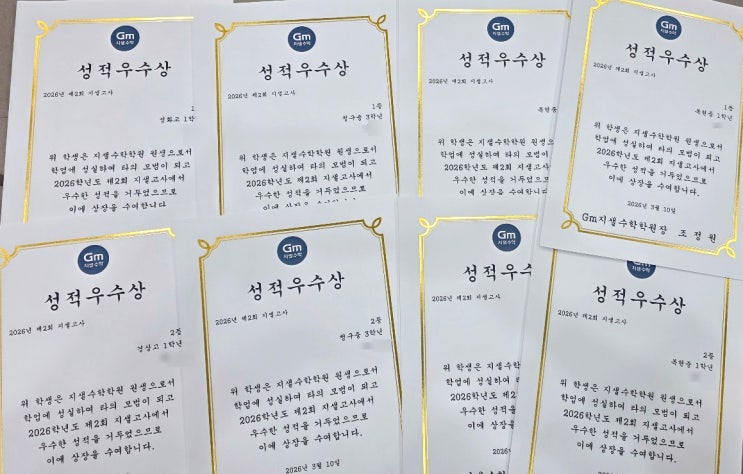 Gm
지샘수학
성적우수상
2026년 제2회 지샘고사
위 학생은 지샘수학학원 원생으로서
학업에 성실하여 타의 모범이 되고
2026학년도 제2회 지샘고사에서
우수한 성적을 거두었으므로
이에 상장을 수여합니다
Gm
지샘수학
성적우수상
2026년 제2회 지샘고사
1등
청구중 3학년
위 학생은 지샘수학학원 원생으로서
학업에 성실하여 타의 모범이 되고
2026학년도 제2회 지샘고사에서
우수한 성적을 거두었으므로
이에 상장을 수여합니다.
Gm
지샘수학
성적우수상
2026년 제2회 지샘고사
위 학생은 지샘수학학원 원생으로
학업에 성실하여 타의 모범이
2026학년도 제2회 지샘고사
우수한 성적을 거두었으므
Gm
지샘수학
성적우수상
2026년 제2회 지샘고사
1등
목현중 1학년
위 학생은 지샘수학학원 원생으로서
학업에 성실하여 타의 모범이 되고
2026학년도 제2회 지샘고사에서
우수한 성적을 거두었으므로
이에 상장을 수여합니다.
2026년 3월 10일
Gm지샘수학학원장 조정원
Gm
지샘수학
성적우수상
2026년 제2회 지샘고사
2등
1학년
위 학생은 지샘수학학원 원생으로서
학업에 성실하여 타의 모범이 되고
2026학년도 제2회 지샘고사에서
우수한 성적을 거두었으므로
이에 상장을 수여합니다.
Gm
지샘수학
성적우수상
2026년 제2회 지샘고사
2등
청구중 3학년
위 학생은 지샘수학학원 원생으로서
학업에 성실하여 타의 모범이 되고
2026학년도 제2회 지샘고사에서
우수한 성적을 거두었으므로
이에 상장을 수여합니다.
2026년 3월 10일
Gm
지샘수학
성적우수
2026년 제2회 지샘고사
위 학생은 지샘수학
학업에 성실하여
2026학년도 제2
우수한 성적을
이에 상장을
2026년
Gm
지샘수학
성적우수상
2026년 제2회 지샘고사
2등
목현중 1학년
위 학생은 지샘수학학원 원생으로서
학업에 성실하여 타의 모범이 되고
2026학년도 제2회 지샘고사에서
우수한 성적을 거두었으므로
이에 상장을 수여합니다.
2026년 3월 10일